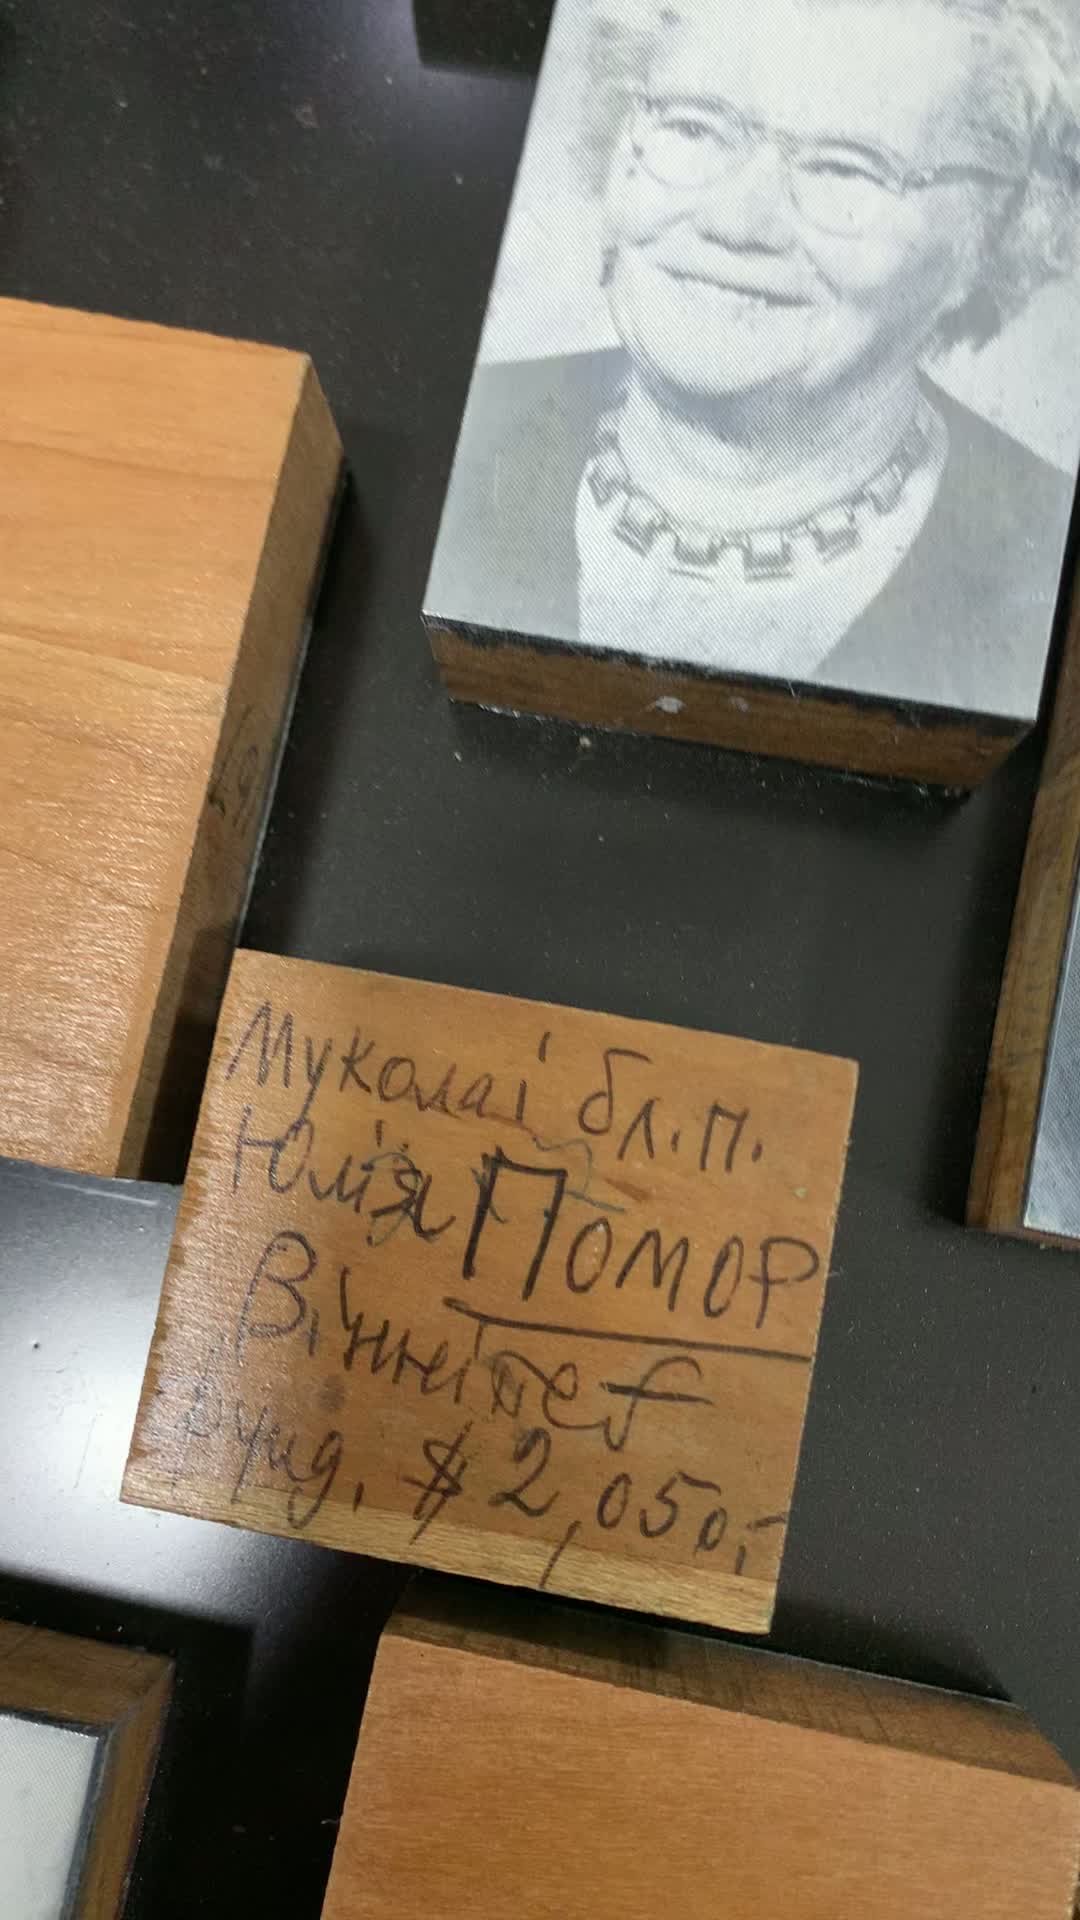 Муколаї бл. п.
Юлія Помор
Вінніпеґ
Фунд. $ 2,050,-